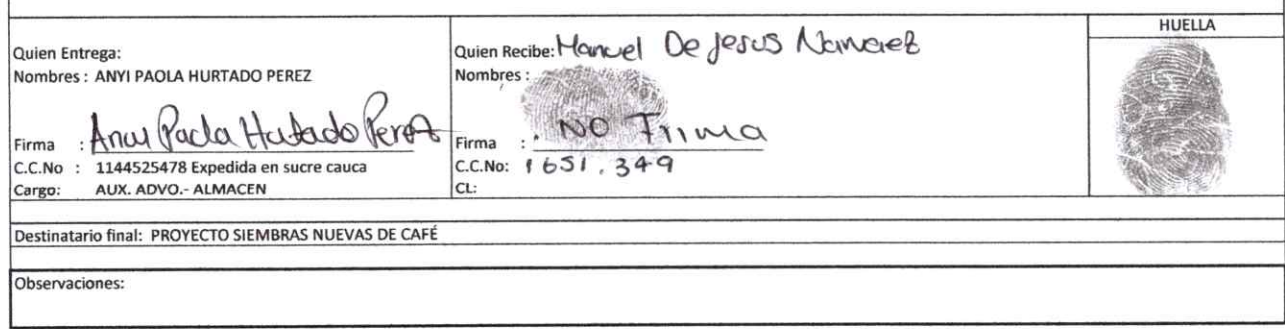 HUELLA
Quien Entrega:
Nombres : ANYI PAOLA HURTADO PEREZ
Firma : Anyi Paola Hurtado Perez
C.C.No : 1144525478 Expedida en sucre cauca
Cargo: AUX. ADVO.- ALMACEN
Quien Recibe: Manuel De Jesus Narvaez
Nombres :
Firma : . NO Frima
C.C.No: 1651.349
CL:
Destinatario final: PROYECTO SIEMBRAS NUEVAS DE CAFÉ
Observaciones: